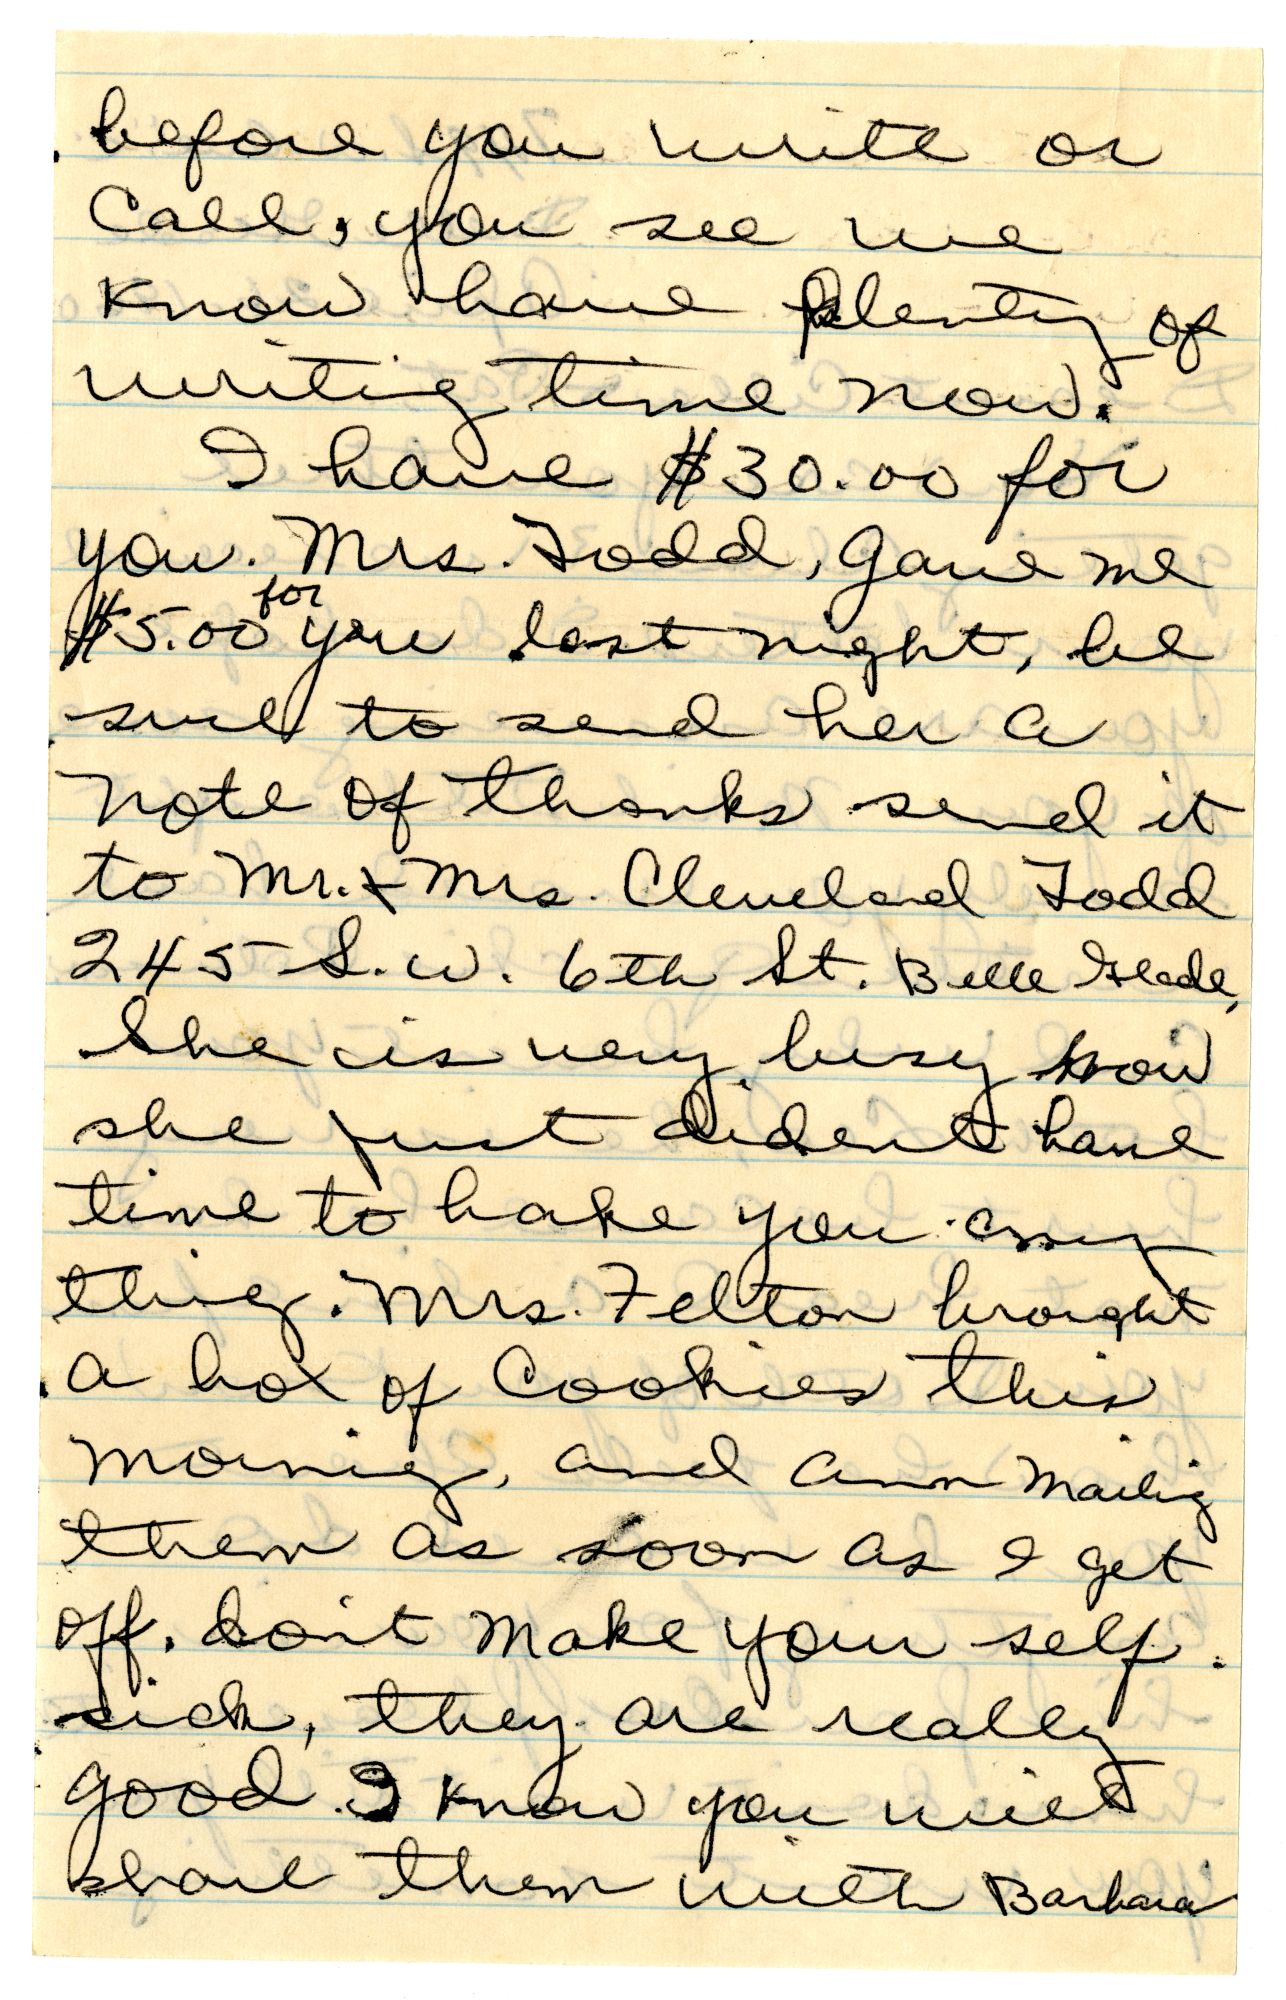 before you write or
Call, you see we
Know have plenty of
writig time now.
I have $30.00 for
you. Mrs. Todd, gave me
$5.00 for you last night, be
sure to send her a
note of thanks send it
to Mr. & Mrs. Cleveland Todd
245 S.W. 6th St. Belle Glade,
She is very busy now
she just dident have
time to bake you any
thig. Mrs. Felton brought
a box of Cookies this
mornig, and am mailig
them as soon as I get
off. don't make your self
sick, they are really
good. I know you will
share them with Barbara